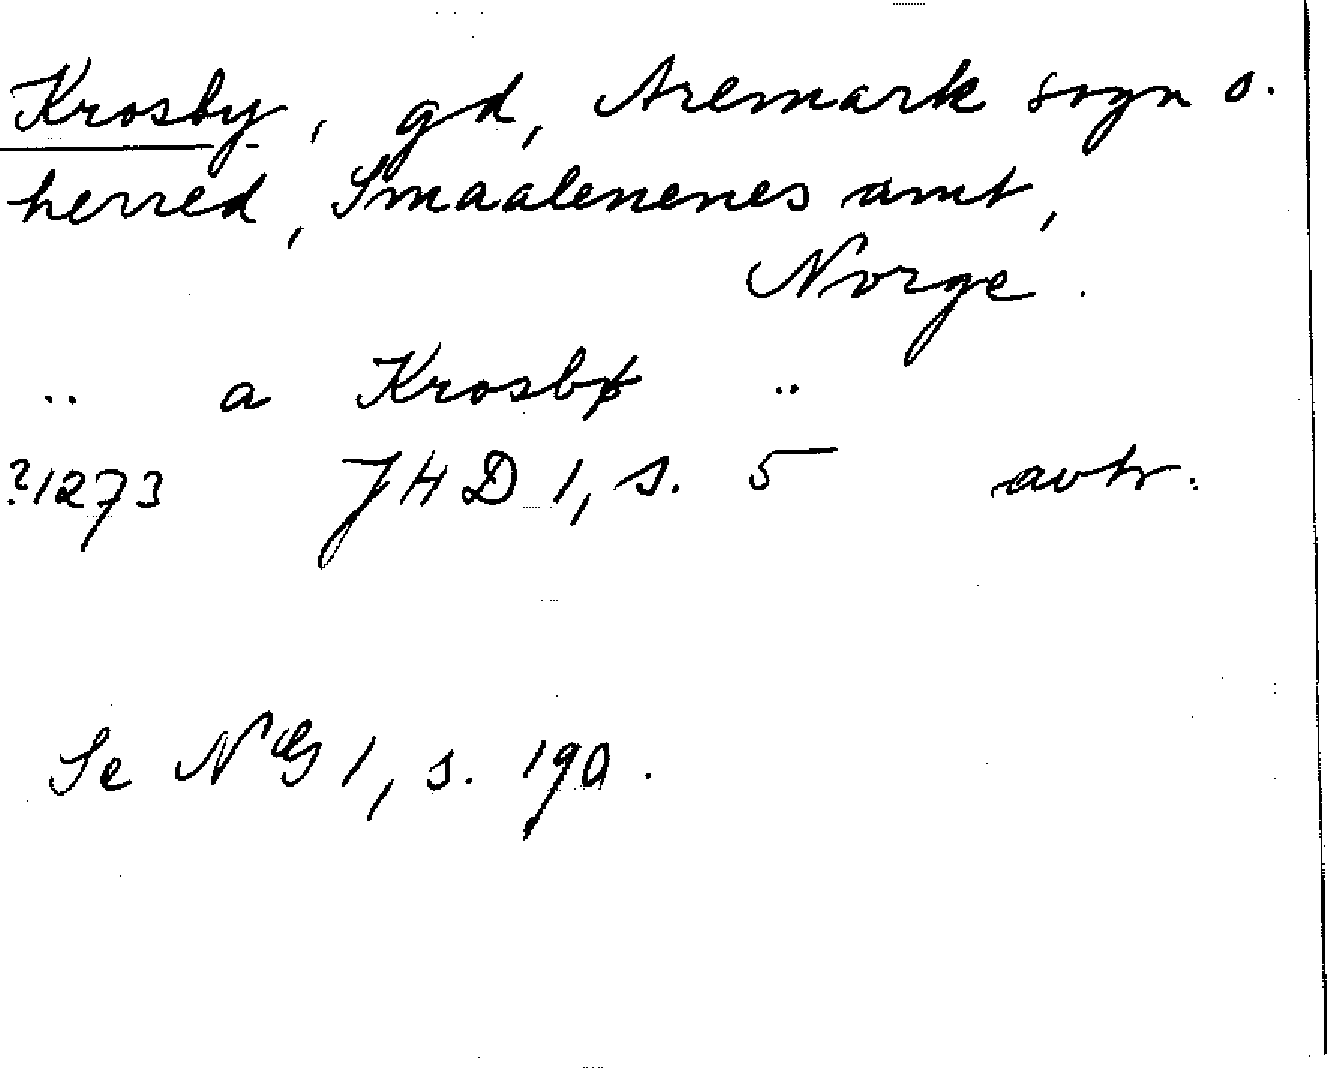 Krosby, gd, Aremark sogn o.
herred, Smaalenenes amt,
Norge.
.. a Krosbø ..
?1273 JHD 1, s. 5 avtr.
Se NG 1, s. 190.